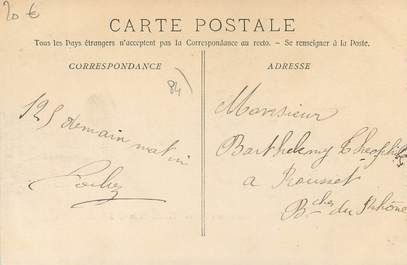 20 €
CARTE POSTALE
Tous les Pays étrangers n'acceptent pas la Correspondance au recto. – Se renseigner à la Poste.
CORRESPONDANCE
ADRESSE
84)
125 demain matin
Monsieur
Barthelemy Théophile
a Rousset
Bches du Rhône